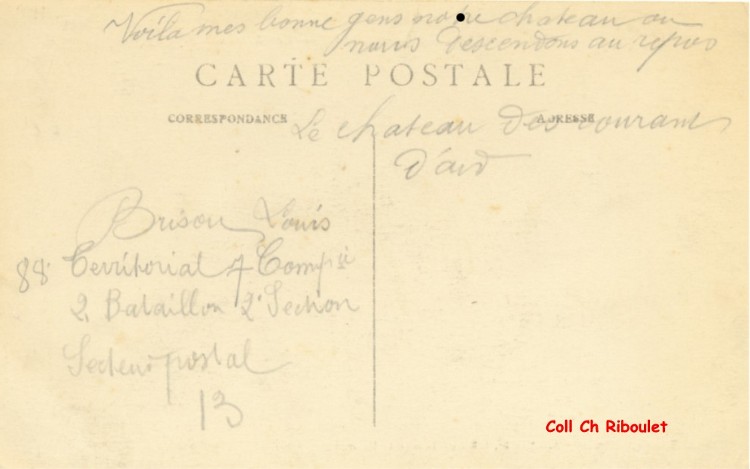 Voila mes bonne gens notre chateau ou
nous descendons au repos
CARTE POSTALE
CORRESPONDANCE
ADRESSE
Le chateau des courant
d'aid
Brison Louis
88 Territorial 7 Comp ie
2 Bataillon 2e Section
Secteur postal
13
Coll Ch Riboulet